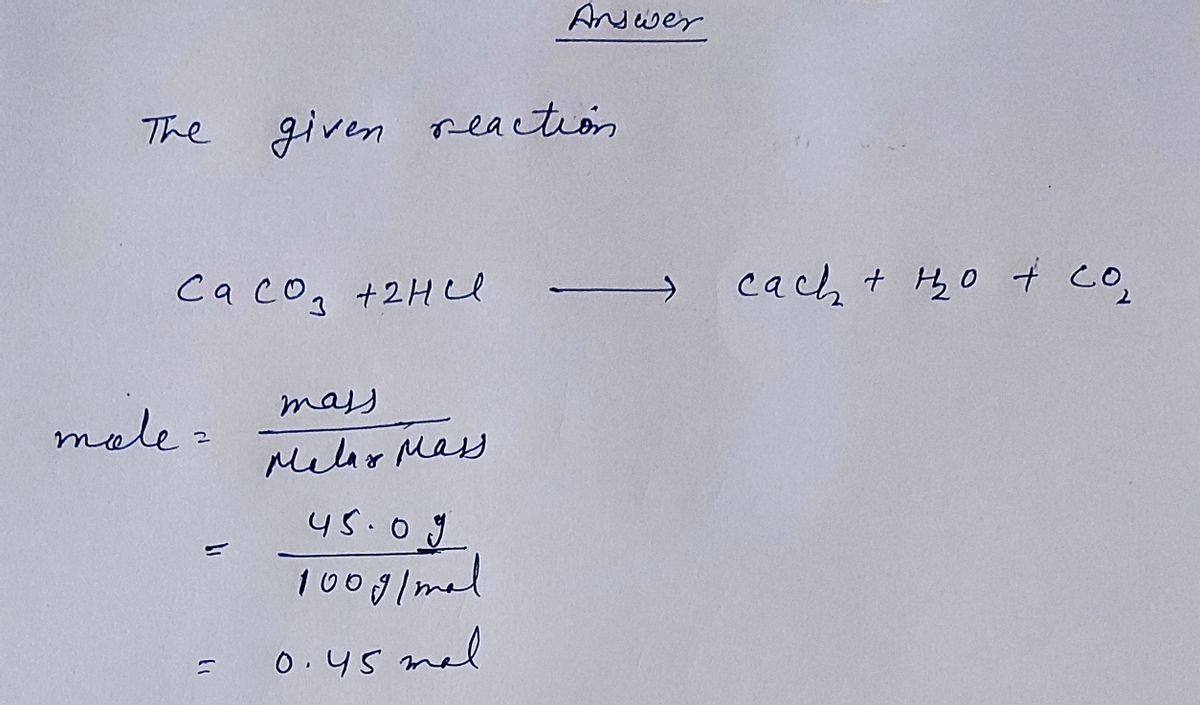 Answer
The given reaction
CaCO₃ +2HCl ⟶ CaCl₂ + H₂O + CO₂
mole = mass / Molar Mass
= 45.0 g / 100 g/mol
= 0.45 mol